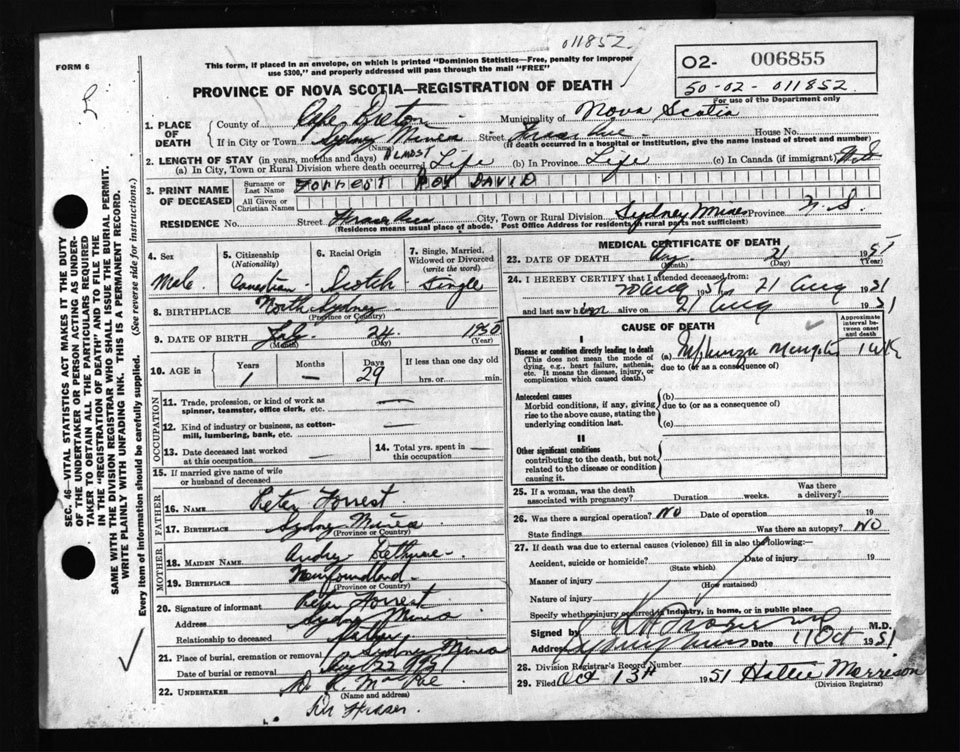 011852
FORM 6
This form, if placed in an envelope, on which is printed "Dominion Statistics—Free, penalty for improper
use $300," and properly addressed will pass through the mail "FREE"
O2- 006855
50-02-011852
For use of the Department only
PROVINCE OF NOVA SCOTIA—REGISTRATION OF DEATH
1. PLACE OF DEATH
County of Cape Breton Municipality of Nova Scotia
If in City or Town Sydney Mines Street Fraser Ave House No.
(Name) (If death occurred in a hospital or institution, give the name instead of street and number)
2. LENGTH OF STAY (in years, months and days)
(a) In City, Town or Rural Division where death occurred Almost Life (b) In Province Life (c) In Canada (if immigrant)
3. PRINT NAME OF DECEASED
Surname or Last Name FORREST ROY DAVID
All Given or Christian Names
RESIDENCE No. Street Fraser Ave City, Town or Rural Division Sydney Mines Province N.S.
(Residence means usual place of abode. Post Office Address for residents in rural parts not sufficient)
4. Sex Male
5. Citizenship (Nationality) Canadian
6. Racial Origin Scotch
7. Single, Married, Widowed or Divorced (write the word) Single
8. BIRTHPLACE North Sydney
(Province or Country)
9. DATE OF BIRTH July 24 1950
(Month) (Day) (Year)
10. AGE in Years Months Days If less than one day old
1 — 29 hrs. or min.
OCCUPATION
11. Trade, profession, or kind of work as
spinner, teamster, office clerk, etc. —
12. Kind of industry or business, as cotton-
mill, lumbering, bank, etc. —
13. Date deceased last worked
at this occupation
14. Total yrs. spent in
this occupation —
15. If married give name of wife
or husband of deceased
FATHER
16. NAME Peter Forrest
17. BIRTHPLACE Sydney Mines
(Province or Country)
MOTHER
18. MAIDEN NAME Audrey Bethune
19. BIRTHPLACE Newfoundland
(Province or Country)
20. Signature of informant Peter Forrest
Address Sydney Mines
Relationship to deceased Father
21. Place of burial, cremation or removal Sydney Mines
Date of burial or removal Aug 22 1951
22. UNDERTAKER
(Name and address)
MEDICAL CERTIFICATE OF DEATH
23. DATE OF DEATH Aug 21 1951
(Month) (Day) (Year)
24. I HEREBY CERTIFY that I attended deceased from:
20 Aug 1951 to 21 Aug 1951
and last saw him alive on 21 Aug 1951
CAUSE OF DEATH
Approximate interval between onset and death
I
Disease or condition directly leading to death
(This does not mean the mode of
dying, e.g., heart failure, asthenia,
etc. It means the disease, injury, or
complication which caused death.)
(a) 1 wk
due to (or as a consequence of)
Antecedent causes
Morbid conditions, if any, giving
rise to the above cause, stating the
underlying condition last.
(b)
due to (or as a consequence of)
(c)
II
Other significant conditions
contributing to the death, but not
related to the disease or condition
causing it.
25. If a woman, was the death
associated with pregnancy? Duration weeks. Was there
a delivery?
26. Was there a surgical operation? NO Date of operation 19
State findings Was there an autopsy? NO
27. If death was due to external causes (violence) fill in also the following:—
Accident, suicide or homicide? Date of injury 19
(State which)
Manner of injury
(How sustained)
Nature of injury
Specify whether injury occurred in industry, in home, or in public place
Signed by M.D.
Address Sydney Mines Date 11 Oct 1951
28. Division Registrar's Record Number
29. Filed Oct 13th 1951 Hattie Morrison
(Division Registrar)
SEC. 46—VITAL STATISTICS ACT MAKES IT THE DUTY
OF THE UNDERTAKER OR PERSON ACTING AS UNDER-
TAKER TO OBTAIN ALL THE PARTICULARS REQUIRED
IN THE "REGISTRATION OF DEATH" AND TO FILE THE
SAME WITH THE DIVISION REGISTRAR WHO SHALL ISSUE THE BURIAL PERMIT.
WRITE PLAINLY WITH UNFADING INK. THIS IS A PERMANENT RECORD.
Every item of information should be carefully supplied. (See reverse side for instructions.)